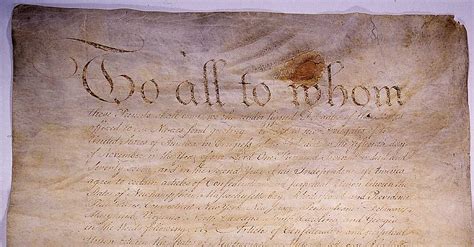 To all to whom
these Presents shall come, we the under signed Delegates of the States
affixed to our Names send greeting. Whereas the Delegates of the
United States of America in Congress assembled did on the fifteenth day
of November in the Year of our Lord One Thousand Seven Hundred and
Seventy seven, and in the Second Year of the Independence of America
agree to certain articles of Confederation and perpetual Union between the
States of Newhampshire, Massachusetts-bay, Rhodeisland and Providence
Connecticut, New York, New Jersey,
Virginia, and Georgia
in the Words following, viz. Articles of Confederation and perpetual
Union between the States of